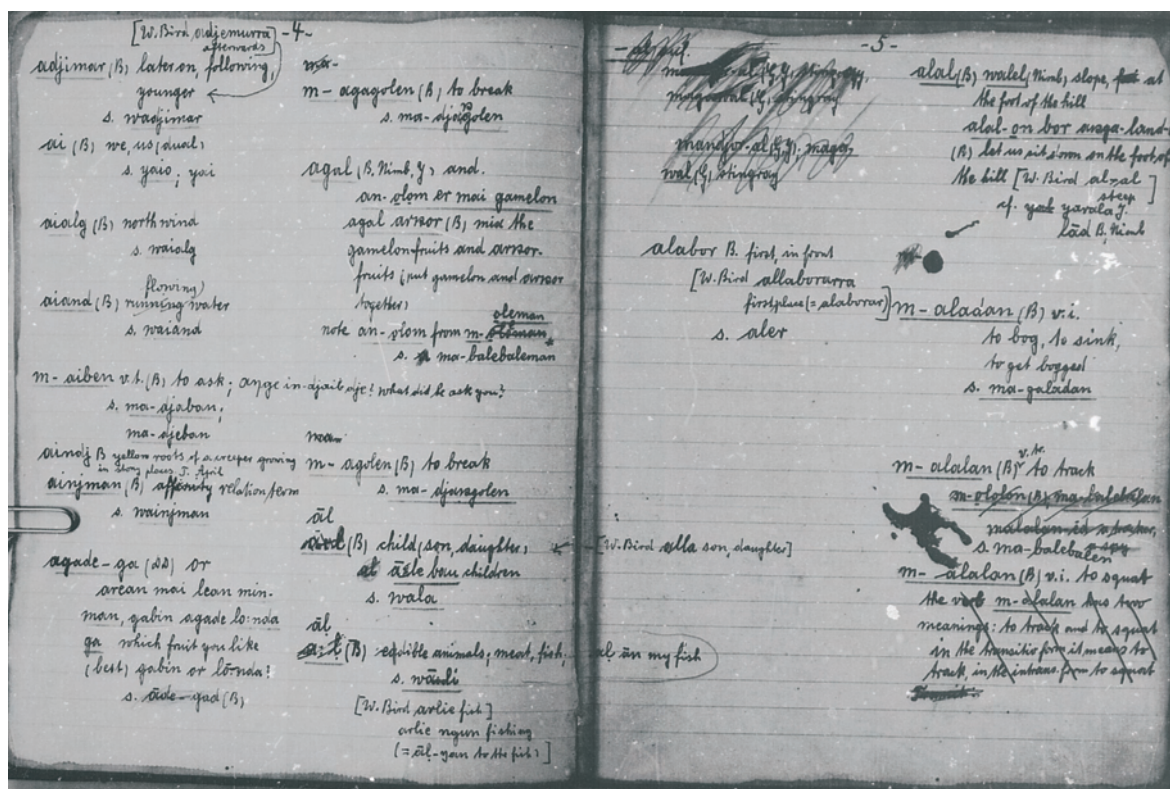 [W. Bird adjemurra] -4-
afterwards
adjimar (B) later on, following,
younger
s. wadjimar
ai (B) we, us (dual)
s. yaio; yai
aialg (B) north wind
s. waialg
flowing)
aiand (B) running water
s. waiand
m-aiben v.t. (B) to ask; ange in-djaib dje? What did he ask you?
s. ma-djaban;
ma-djeban
aindj B yellow roots of a creeper growing
in stony places J. April
ainjman (B) affinity relation term
s. wainjman
agade-ga (B) or
arean mai lean min-
man, gabin agade lo:nda
ga which fruit you like
(best) gabin or lōnda?
s. āde-gad (B)
ma-
m-agagolen (B) to break
s. ma-djagolen
agal (B. Nimb, Y) and.
an-olom er mai gamelon
agal arsor (B) mix the
gamelon-fruits and arsor-
fruits (put gamelon and arsor
together)
oleman
note an-olom from m-
s. ma-balebaleman
ma-
m-agolen (B) to break
s. ma-djaragolen
āl
(B) child, son, daughter,
āːle bau children
s. wala
āl
(B) edible animals, meat, fish,
s. wāːli
[W. Bird arlie fish]
arlie ngun fishing
(= āl-yan to the fish)]
-5-
stingray
stingray
mandjor-al (G, Y), maga-
wal (G) stingray
alabor B. first, in front
[W. Bird allaborarra
first place (= alaborar)]
s. aler
[W. Bird alla son, daughter]
al-ān my fish
alal (B) walel (Nimb) slope, at
the foot of the hill
alal-on bor anga-land-
(B) let us sit down on the foot of
the hill [W. Bird alal
steep]
cf. yarala J.
lād B, Nimb
m-alaḋan (B) v.i.
to bog, to sink,
to get bogged
s. ma-galadan
v. tr.
m-alalan (B) to track
m-ololon (B) ma-balebalan
malalan-id a tracker,
a spy
s. ma-balebalen
m-alalan (B) v.i. to squat
the verb m-alalan has two
meanings: to track and to squat
in the transitiv form it means to
track, in the intrans. form to squat